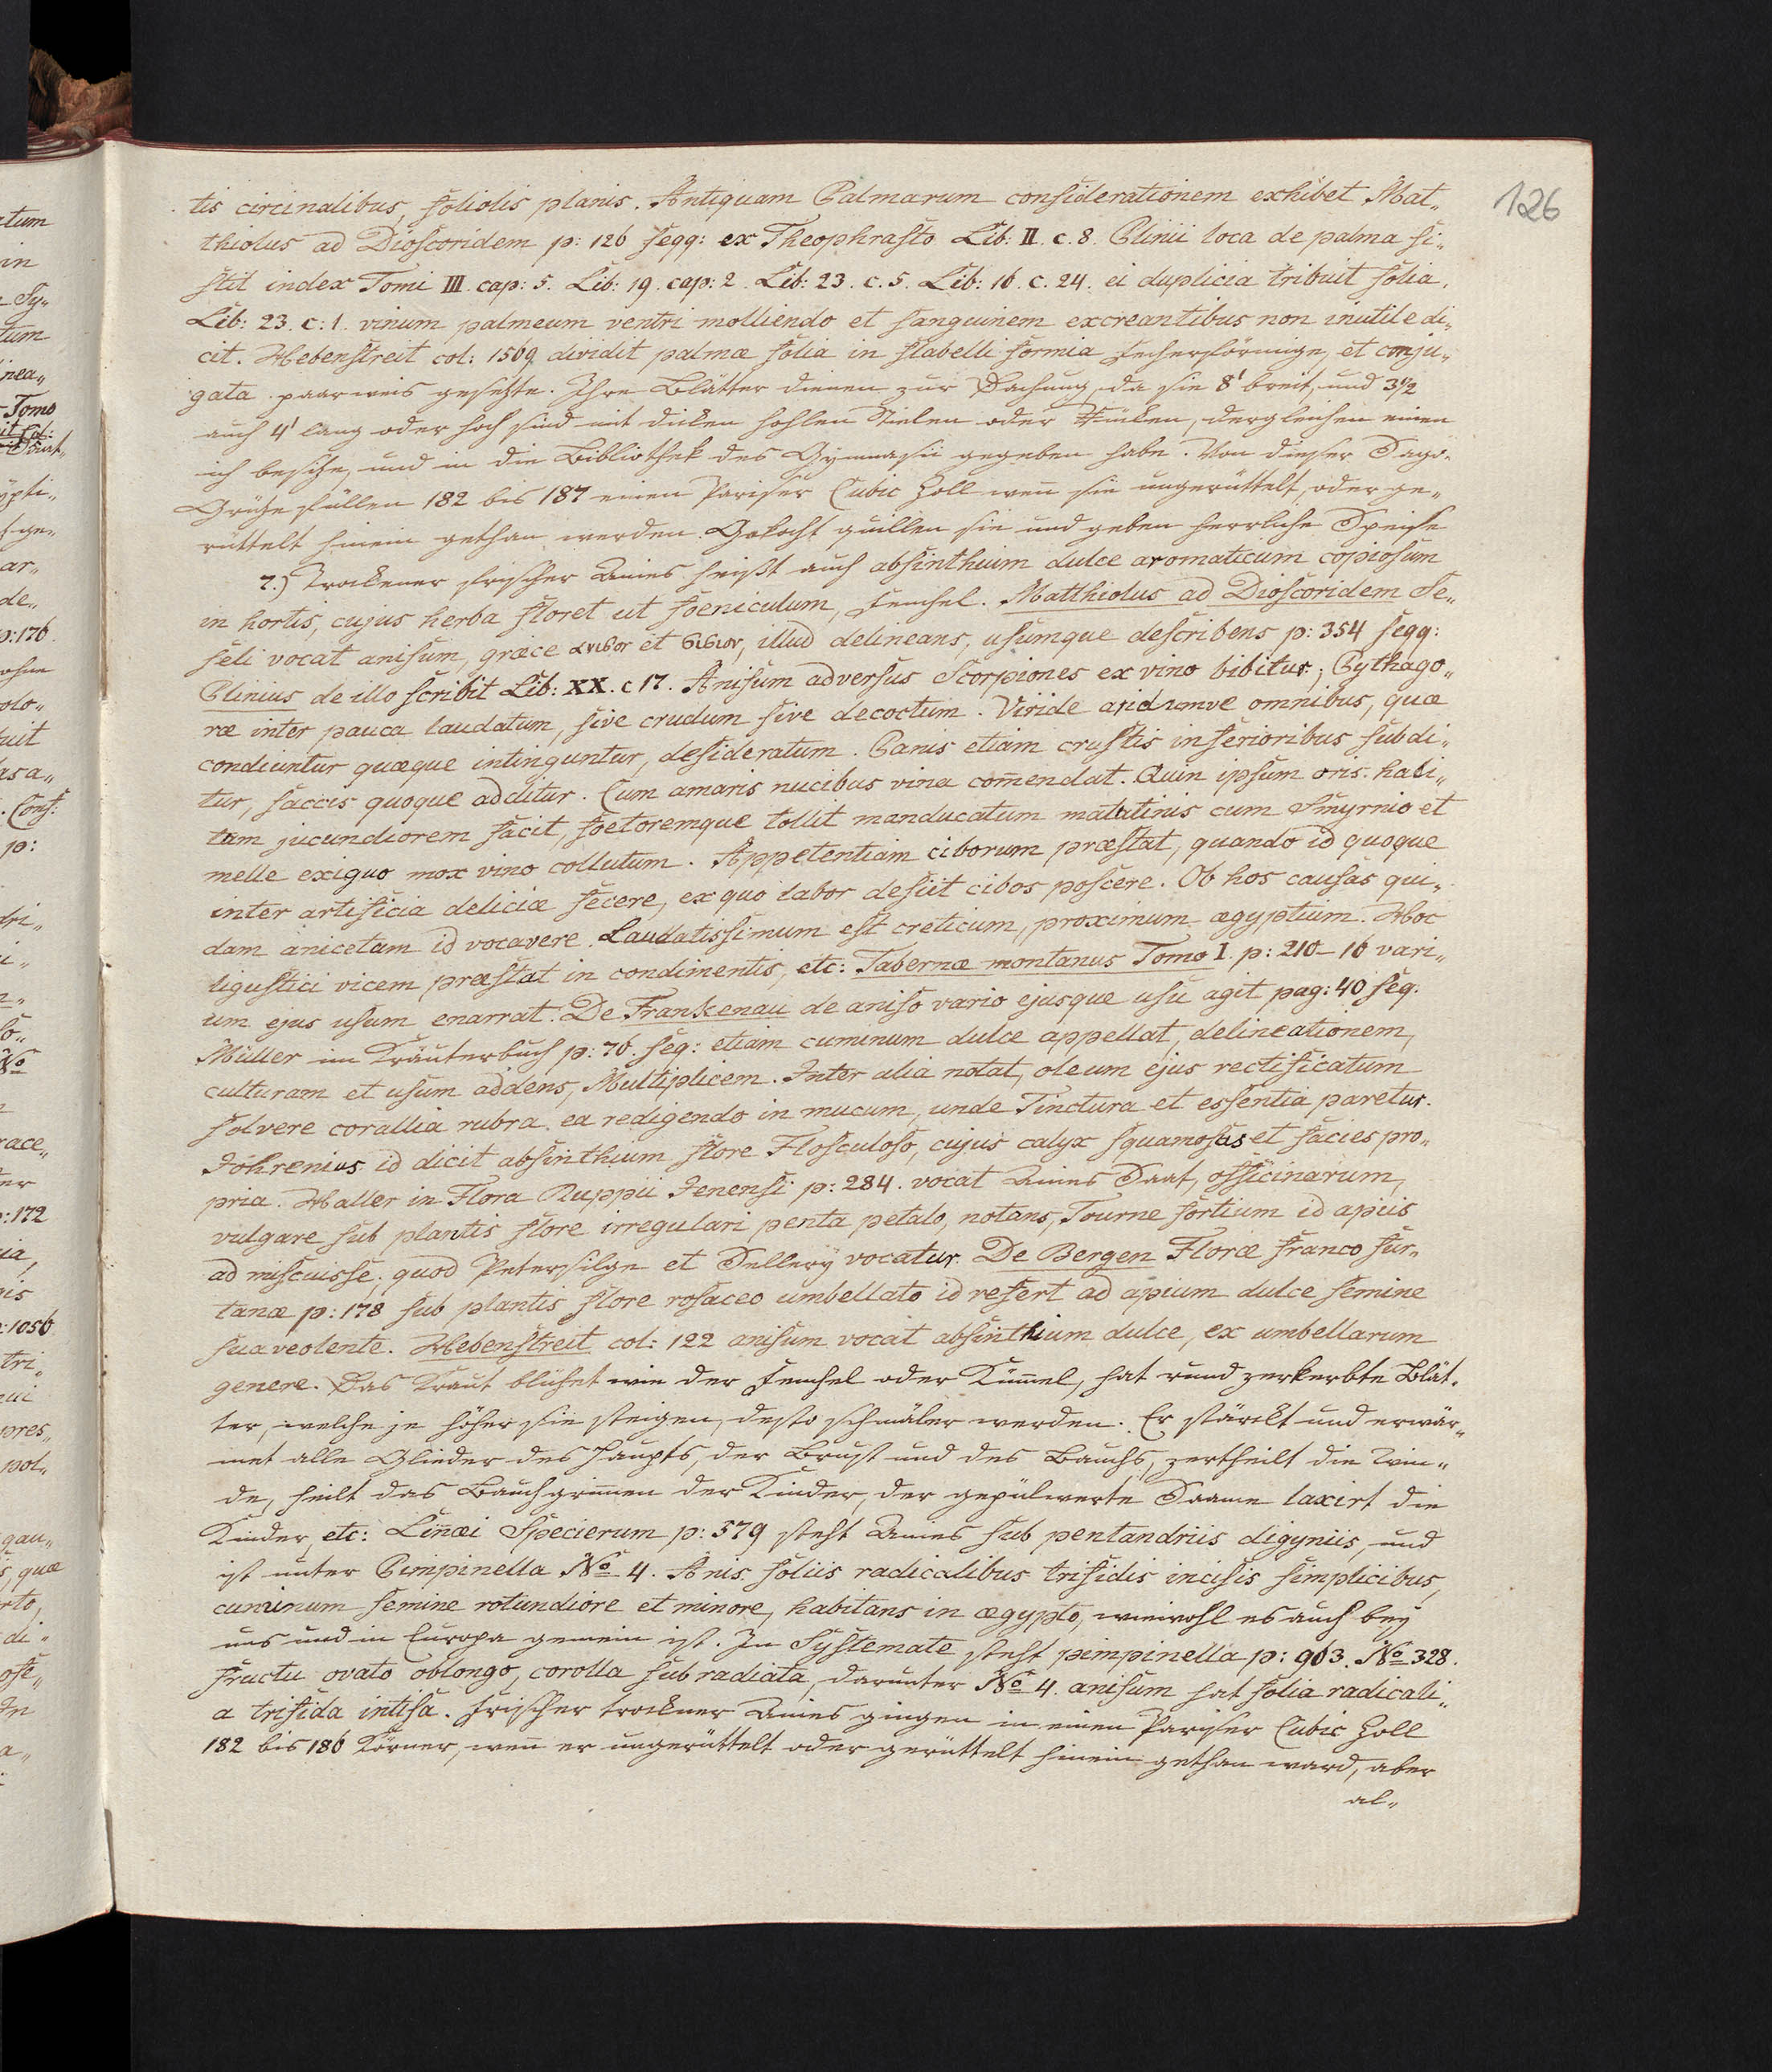 126
tis circinalibus, foliolis planis. Antiquam Palmarum considerationem exhibet Mat„
thiolus ad Dioscoridem p: 126 seqq: ex Theophrasto Lib: II. c. 8. Plinii loca de palma si„
stit index Tomi III. cap: 5. Lib: 19. cap: 2. Lib: 23. c. 5. Lib: 16. c. 24. ei duplicia tribuit folia.
Lib: 23. c: 1. vinum palmeum ventri molliendo et sanguinem excreantibus non inutile di„
cit. Hebenstreit col: 1569 dividit palmæ folia in flabelli formia fecherförmige, et conju„
gata paarweis gesetzte. Ihre Blätter dienen zur Dachung, da sie 8' breit, und 3½
auch 4' lang oder hoch sind mit dicken hohlen Stielen oder, dergleichen einen
ich besitze, und in die Bibliothek des Gymnasii gegeben habe. Von dieser Sago„
Grütze füllen 182 bis 187 einen Pariser Cubic Zoll wen̄ sie ungerüttelt, oder ge„
rüttelt hinein gethan werden. Gekocht quillen sie und geben herrliche Speise
7.) Trockener frischer Anies heißt auch absinthium dulce aromaticum copiosum
in hortis, cujus herba floret ut foeniculum, Fenchel. Matthiolus ad Dioscoridem Se„
seli vocat anisum, græce et, illud delineans, usumque describens p: 354 seqq:
Plinius de illo scribit Lib: XX. c 17. Anisum adversus Scorpiones ex vino bibitur; Pythago„
ræ inter pauca laudatum, sive crudum sive decoctum. Viride aridumve omnibus, quæ
condiuntur quæque intinguntur, desideratum. Panis etiam crustis inferioribus subdi„
tur, saccis quoque additur. Cum amaris nucibus vina com̄endat. Quin ipsum oris hali„
tum jucundiorem facit, foetoremque tollit manducatum matutinis cum Smyrnio et
melle exiguo mox vino collutum. Appetentiam ciborum præstat, quando id quoque
inter artificia deliciæ fecere, ex quo labor desiit cibos poscere. Ob hos causas qui„
dam anicetum id vocavere. Laudatissimum est creticum, proximum ægyptium. Hoc
ligustici vicem præstat in condimentis, etc: Tabernæ montanus Tomo I. p: 210–16 vari„
um ejus usum enarrat. De Frankenau de aniso vario ejusque usu agit pag: 40 seq.
Müller im Kräuterbuch p: 76. seq: etiam cuminum dulce appellat, delineationem,
culturam et usum addens, Multiplicem. Inter alia notat, oleum ejus rectificatum
solvere corallia rubra. ea redigendo in mucum, unde Tinctura et essentia paretur.
Johrenius id dicit absinthium flore Flosculoso, cujus calyx squamosus et facies pro„
pria. Haller in Flora Ruppii Jenensi p: 284. vocat Anies Saat, officinarum,
vulgare sub plantis flore irregulari penta petalo, notans, Tourne fortium id apiis
ad miscuisse, quod Petersilge et Sellery vocatur. De Bergen Floræ Franco fur„
tanæ p: 178 sub plantis flore rosaceo umbellato id refert ad apium dulce semine
suaveolente. Hebenstreit col: 122 anisum vocat absinthium dulce, ex umbellarum
genere. Das Kraut blühet wie der Fenchel oder Küm̄el, hat rund zerkerbte Blät„
ter, welche je höher sie steigen, desto schmäler werden. Er stärckt und erwär„
met alle Glieder des Haupts, der Brust und des Bauchs, zertheilt die Win„
de, heilt das Bauchgrim̄en der Kinder, der gepülwerte Saame laxirt die
Kinder, etc: Lin̄æi Specierum p: 379 steht Anies sub pentandriis digyniis, und
ist unter Pimpinella No 4. Anis foliis radicalibus trifidis incisis simplicibus,
cuminum semine rotundiore et minore, habitans in ægypto, wiewohl es auch bey
uns und in Europa gemein ist. In Systemate steht pimpinella p: 963. No 328.
fructu ovato oblongo, corolla sub radiata, darunter No 4. anisum hat folia radicali„
a trifida intisa. Frischer trockner Anies gingen in einen Pariser Cubic Zoll
182 bis 186 Körner, wen̄ er ungerüttelt oder gerüttelt hinein gethan ward, aber
al„